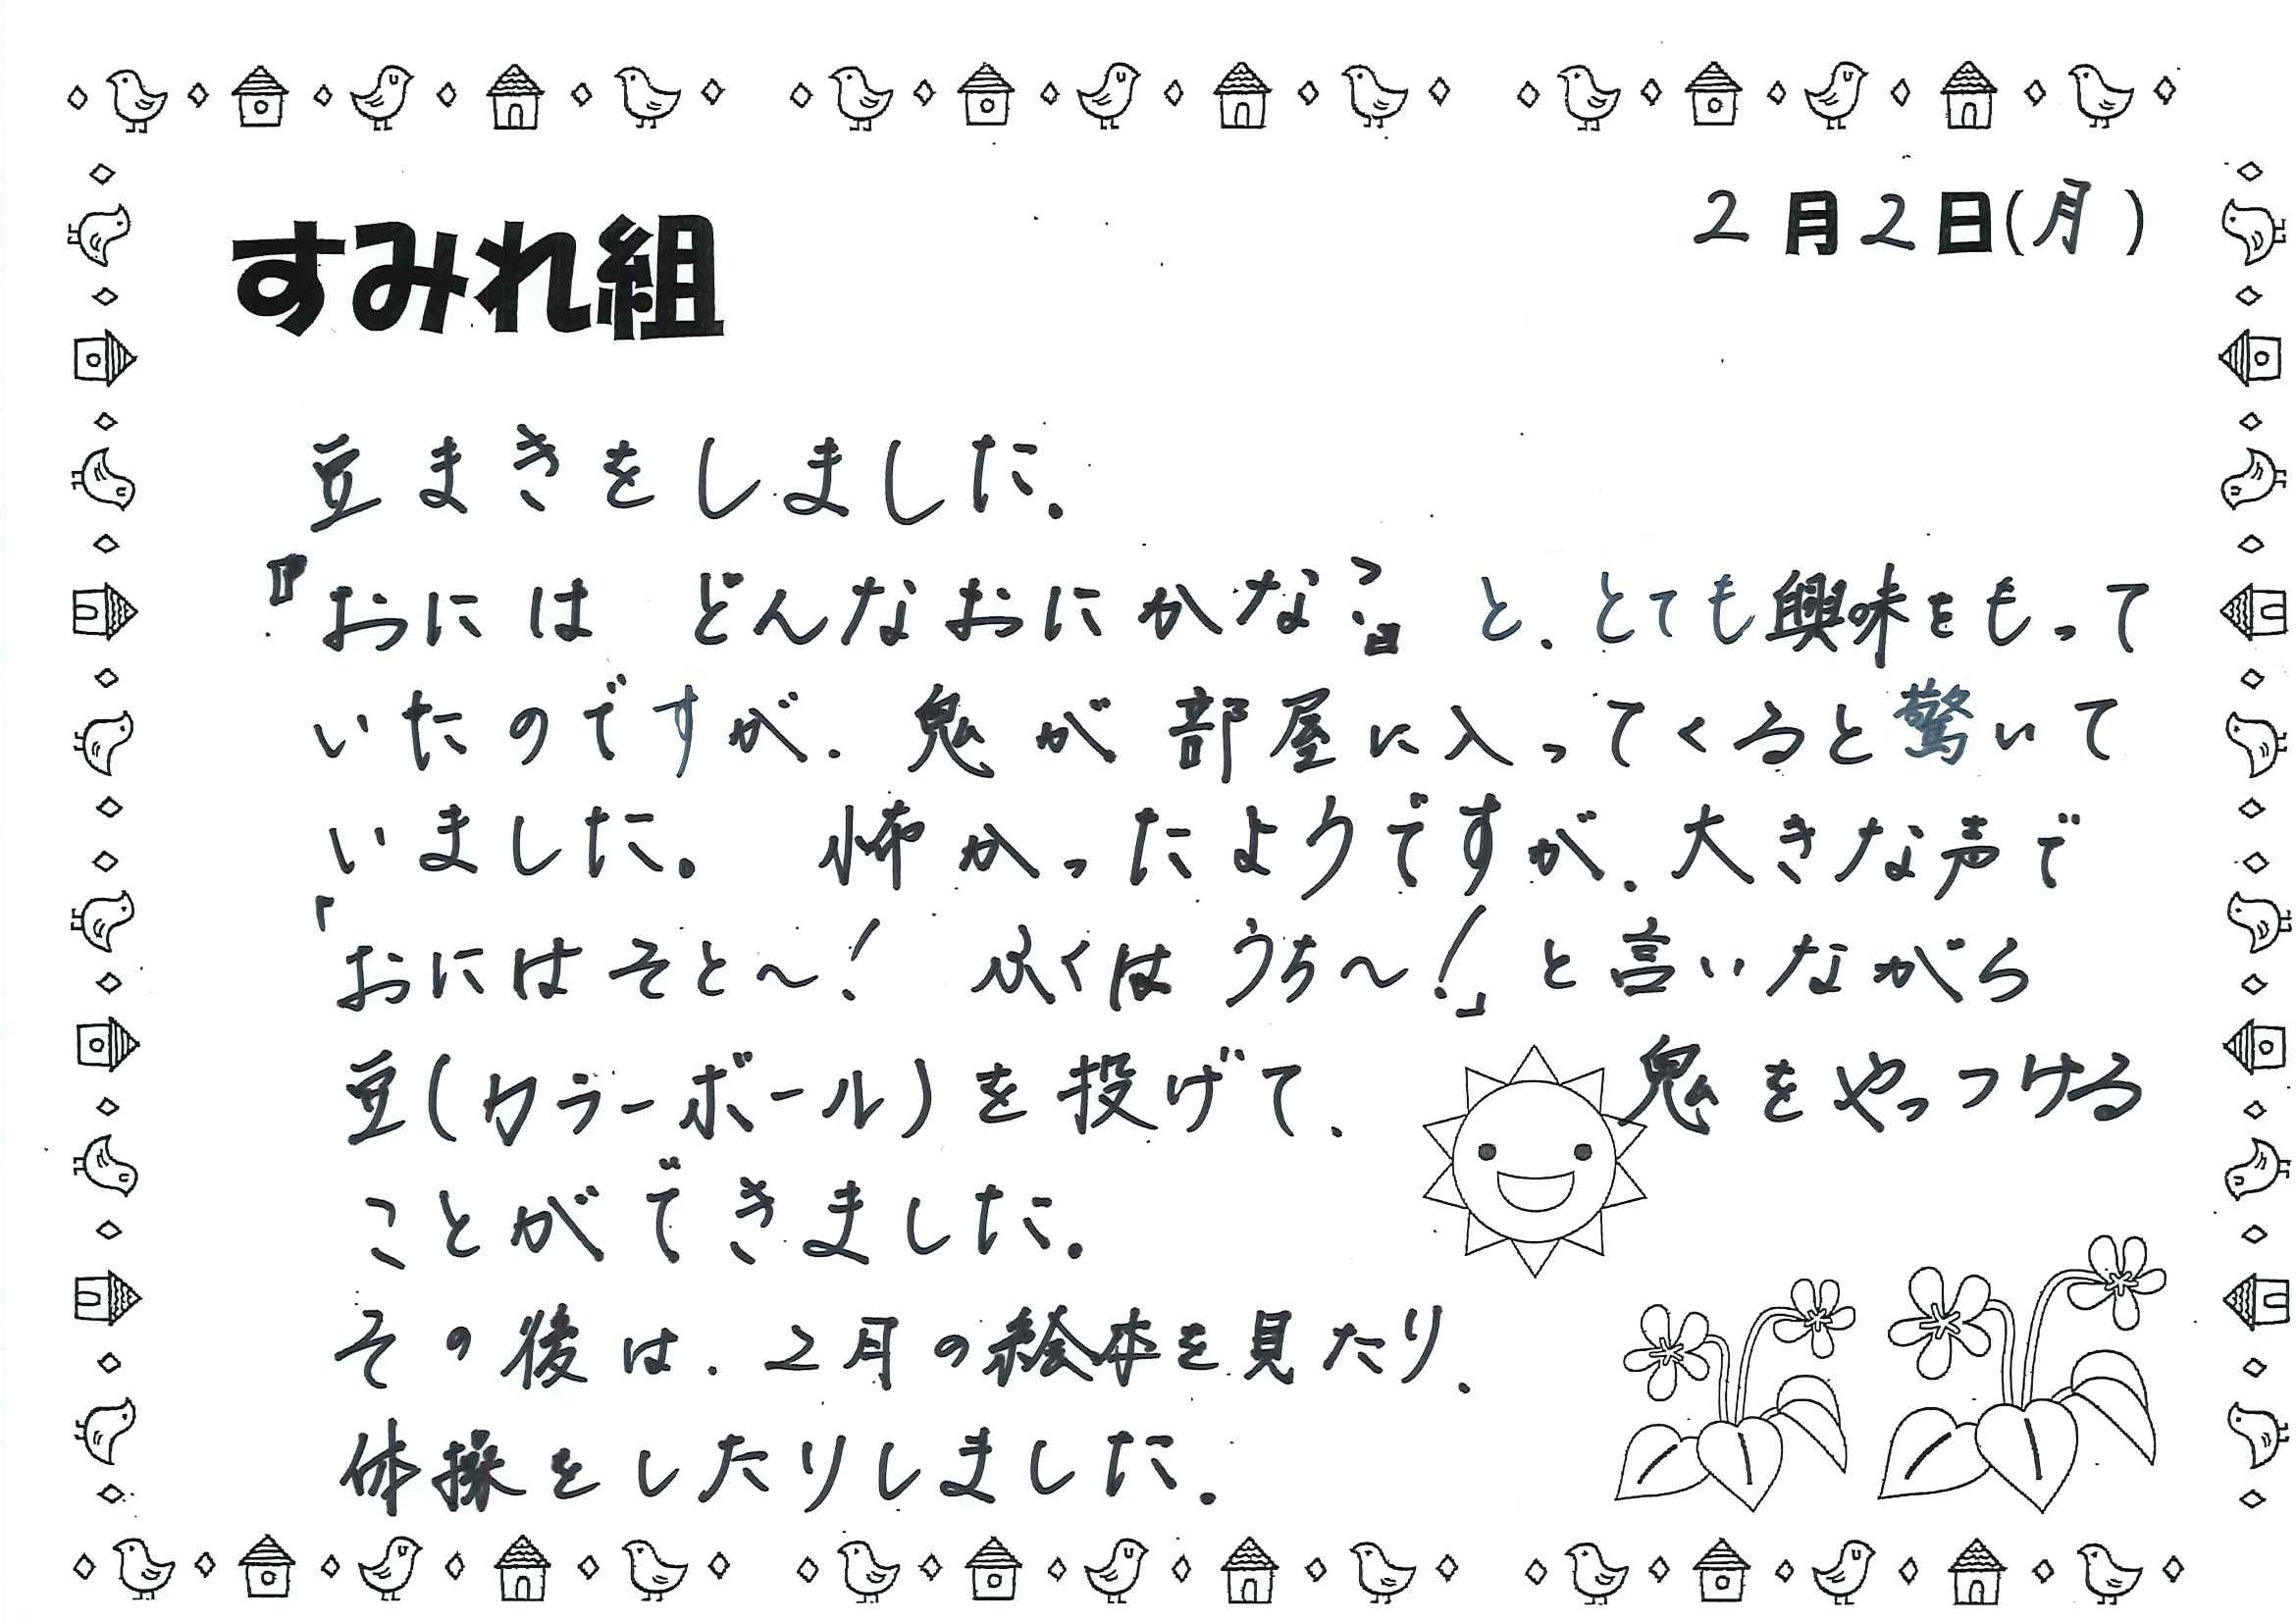 2月2日(月)
すみれ組
豆まきをしました.
『おには どんなおにかな?』 と、とても興味をもって
いたのですが、鬼が部屋に入ってくると驚いて
いました。 怖かったようですが、大きな声で
「おにはそと~! ふくは うち~!」と言いながら
豆(カラーボール)を投げて、 鬼をやっつける
ことができました。
その後は、2月の絵本を見たり、
体操をしたりしました.